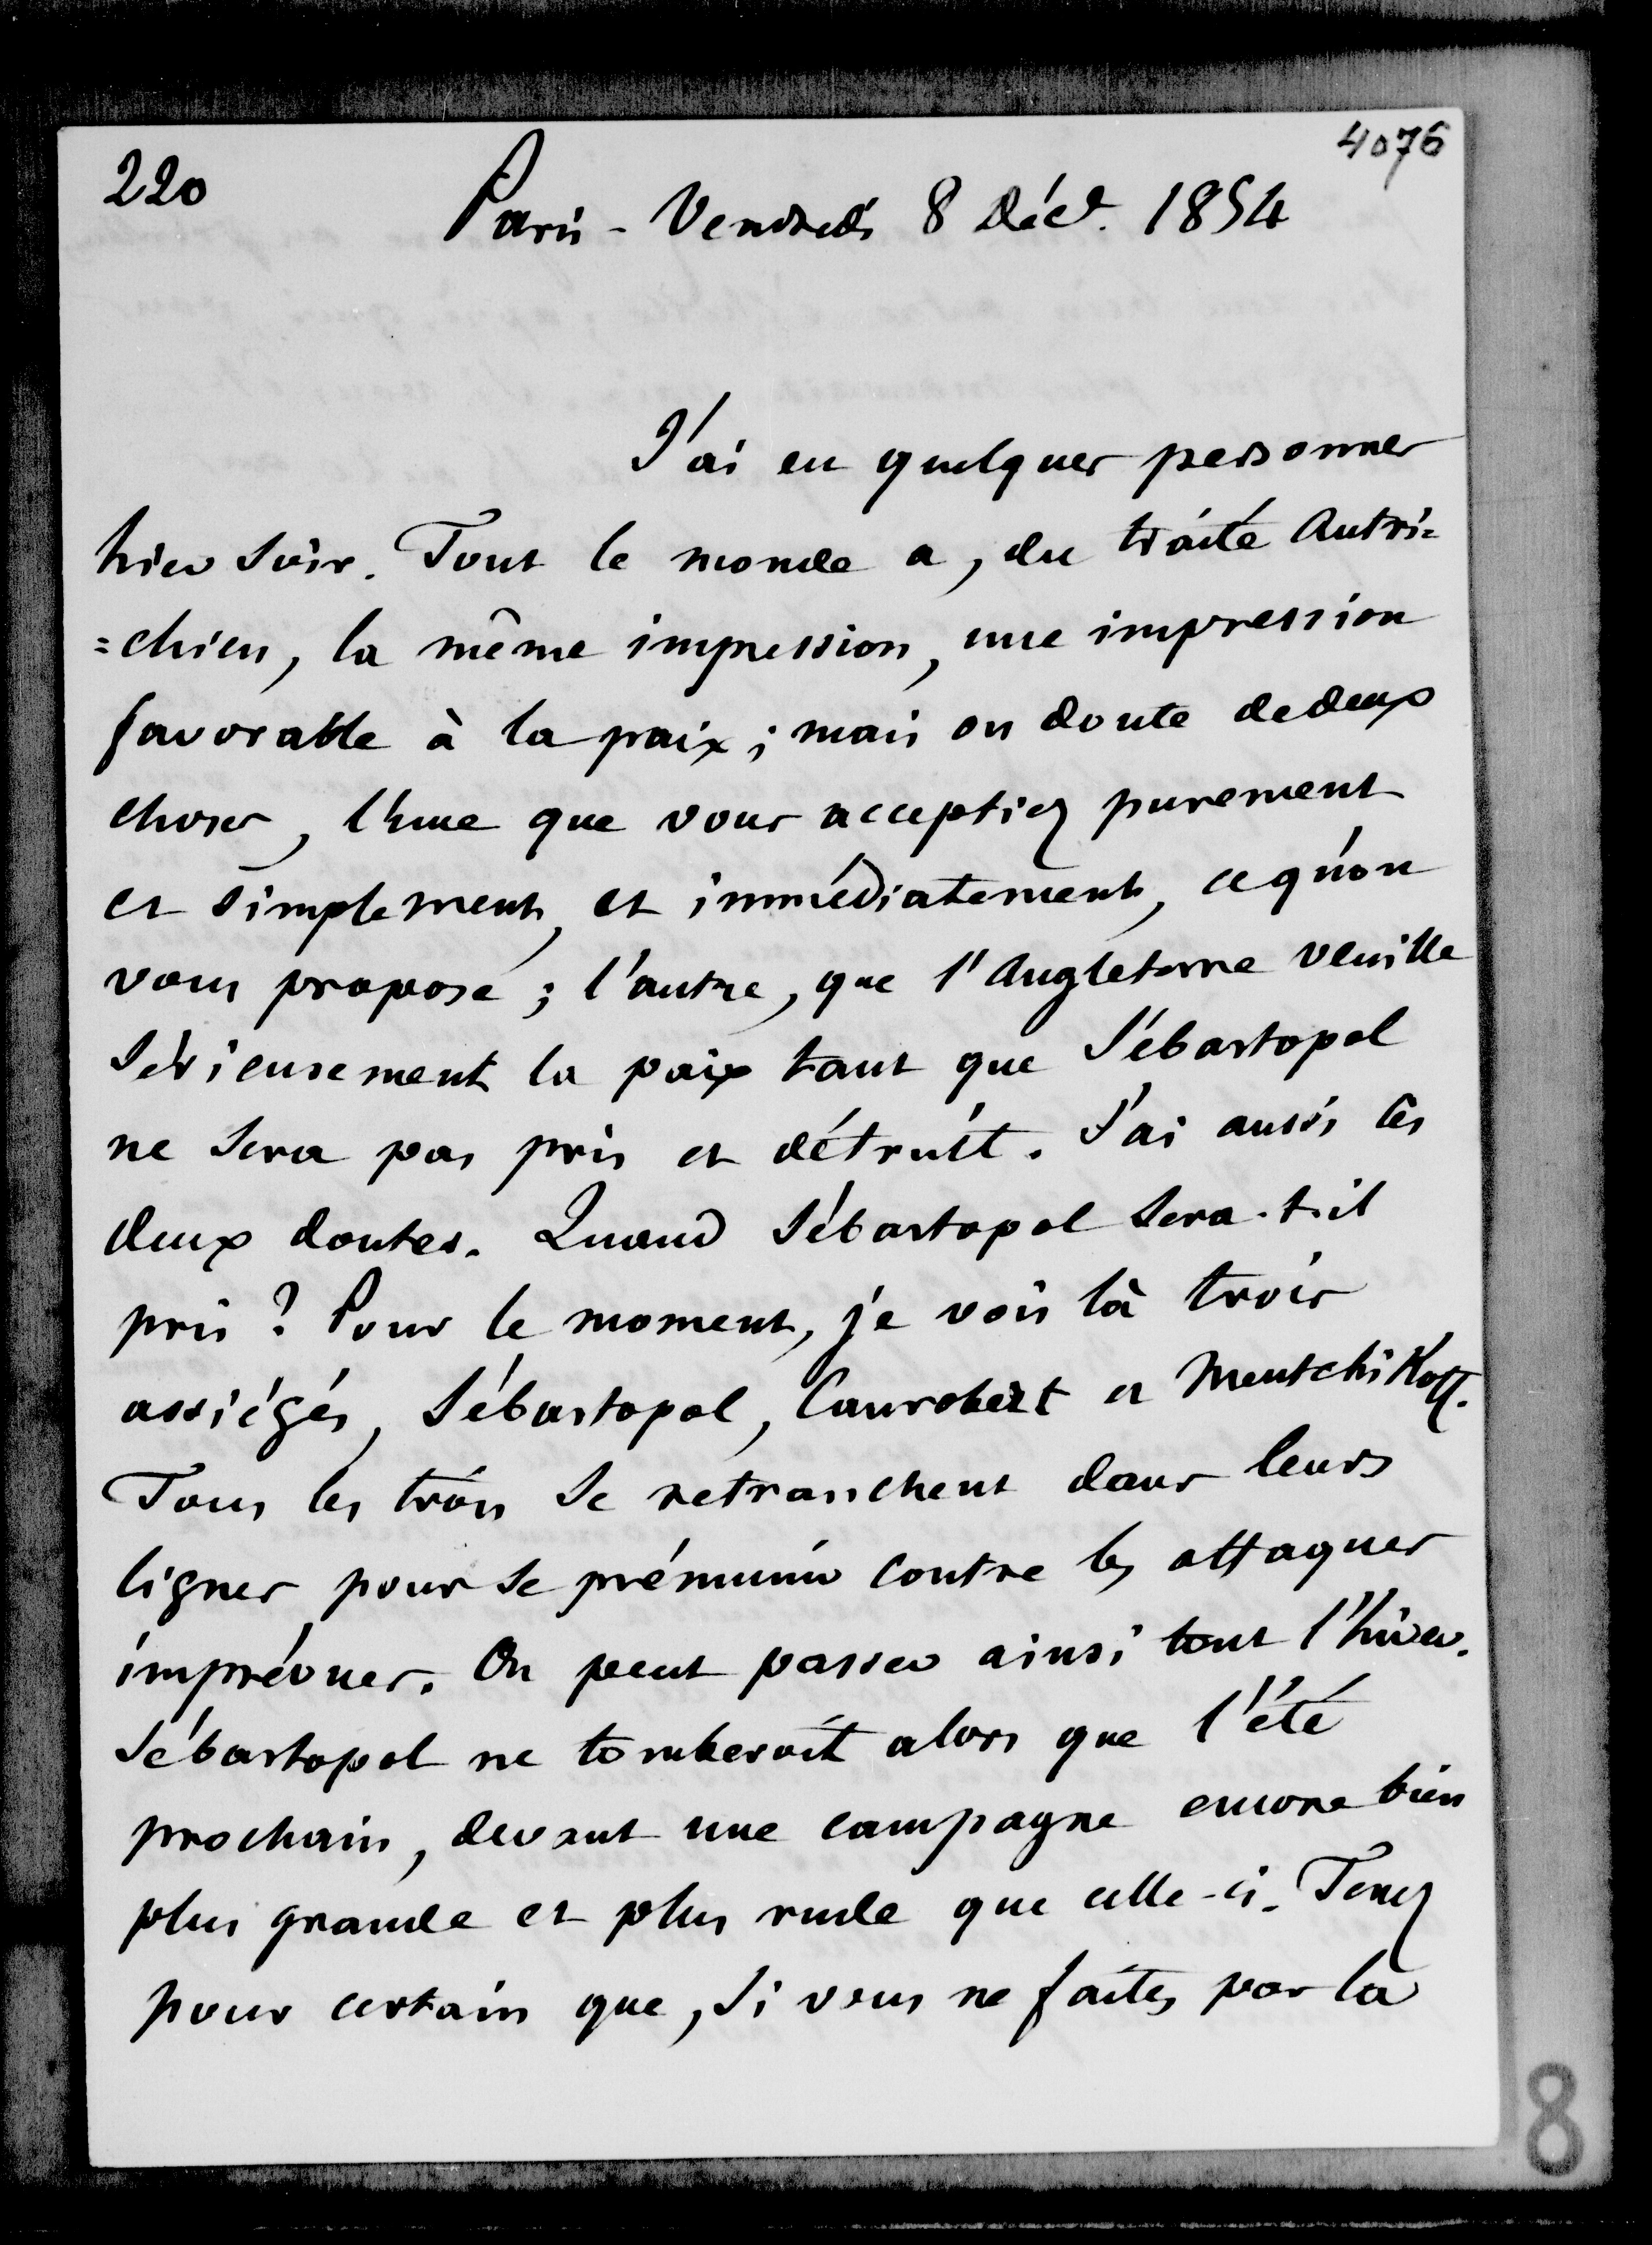 4076
220
Paris - Vendredi 8 Déc. 1854
J'ai eu quelques personnes
hier soir. Tout le monde a, du traité Autri=
=chien, la même impression, une impression
favorable à la paix ; mais on doute de deux
choses, l'une que vous acceptiez purement
et simplement, et immédiatement, ce qu'on
vous propose ; l'autre, que l'Angleterre veuille
sérieusement la paix tant que Sébastopol
ne sera pas pris et détruit. J'ai aussi les
deux doutes. Quand Sébastopol sera-t-il
pris ? Pour le moment, je vois là trois
assiégés, Sébastopol, Canrobert et Mentchikoff.
Tous les trois se retranchent dans leurs
lignes pour se prémunir contre les attaques
imprévues. On peut passer ainsi tout l'hiver.
Sébastopol ne tomberoit alors que l'été
prochain, devant une campagne encore bien
plus grande et plus rude que celle-ci. Tenez
pour certain que, si vous ne faites pas la
8